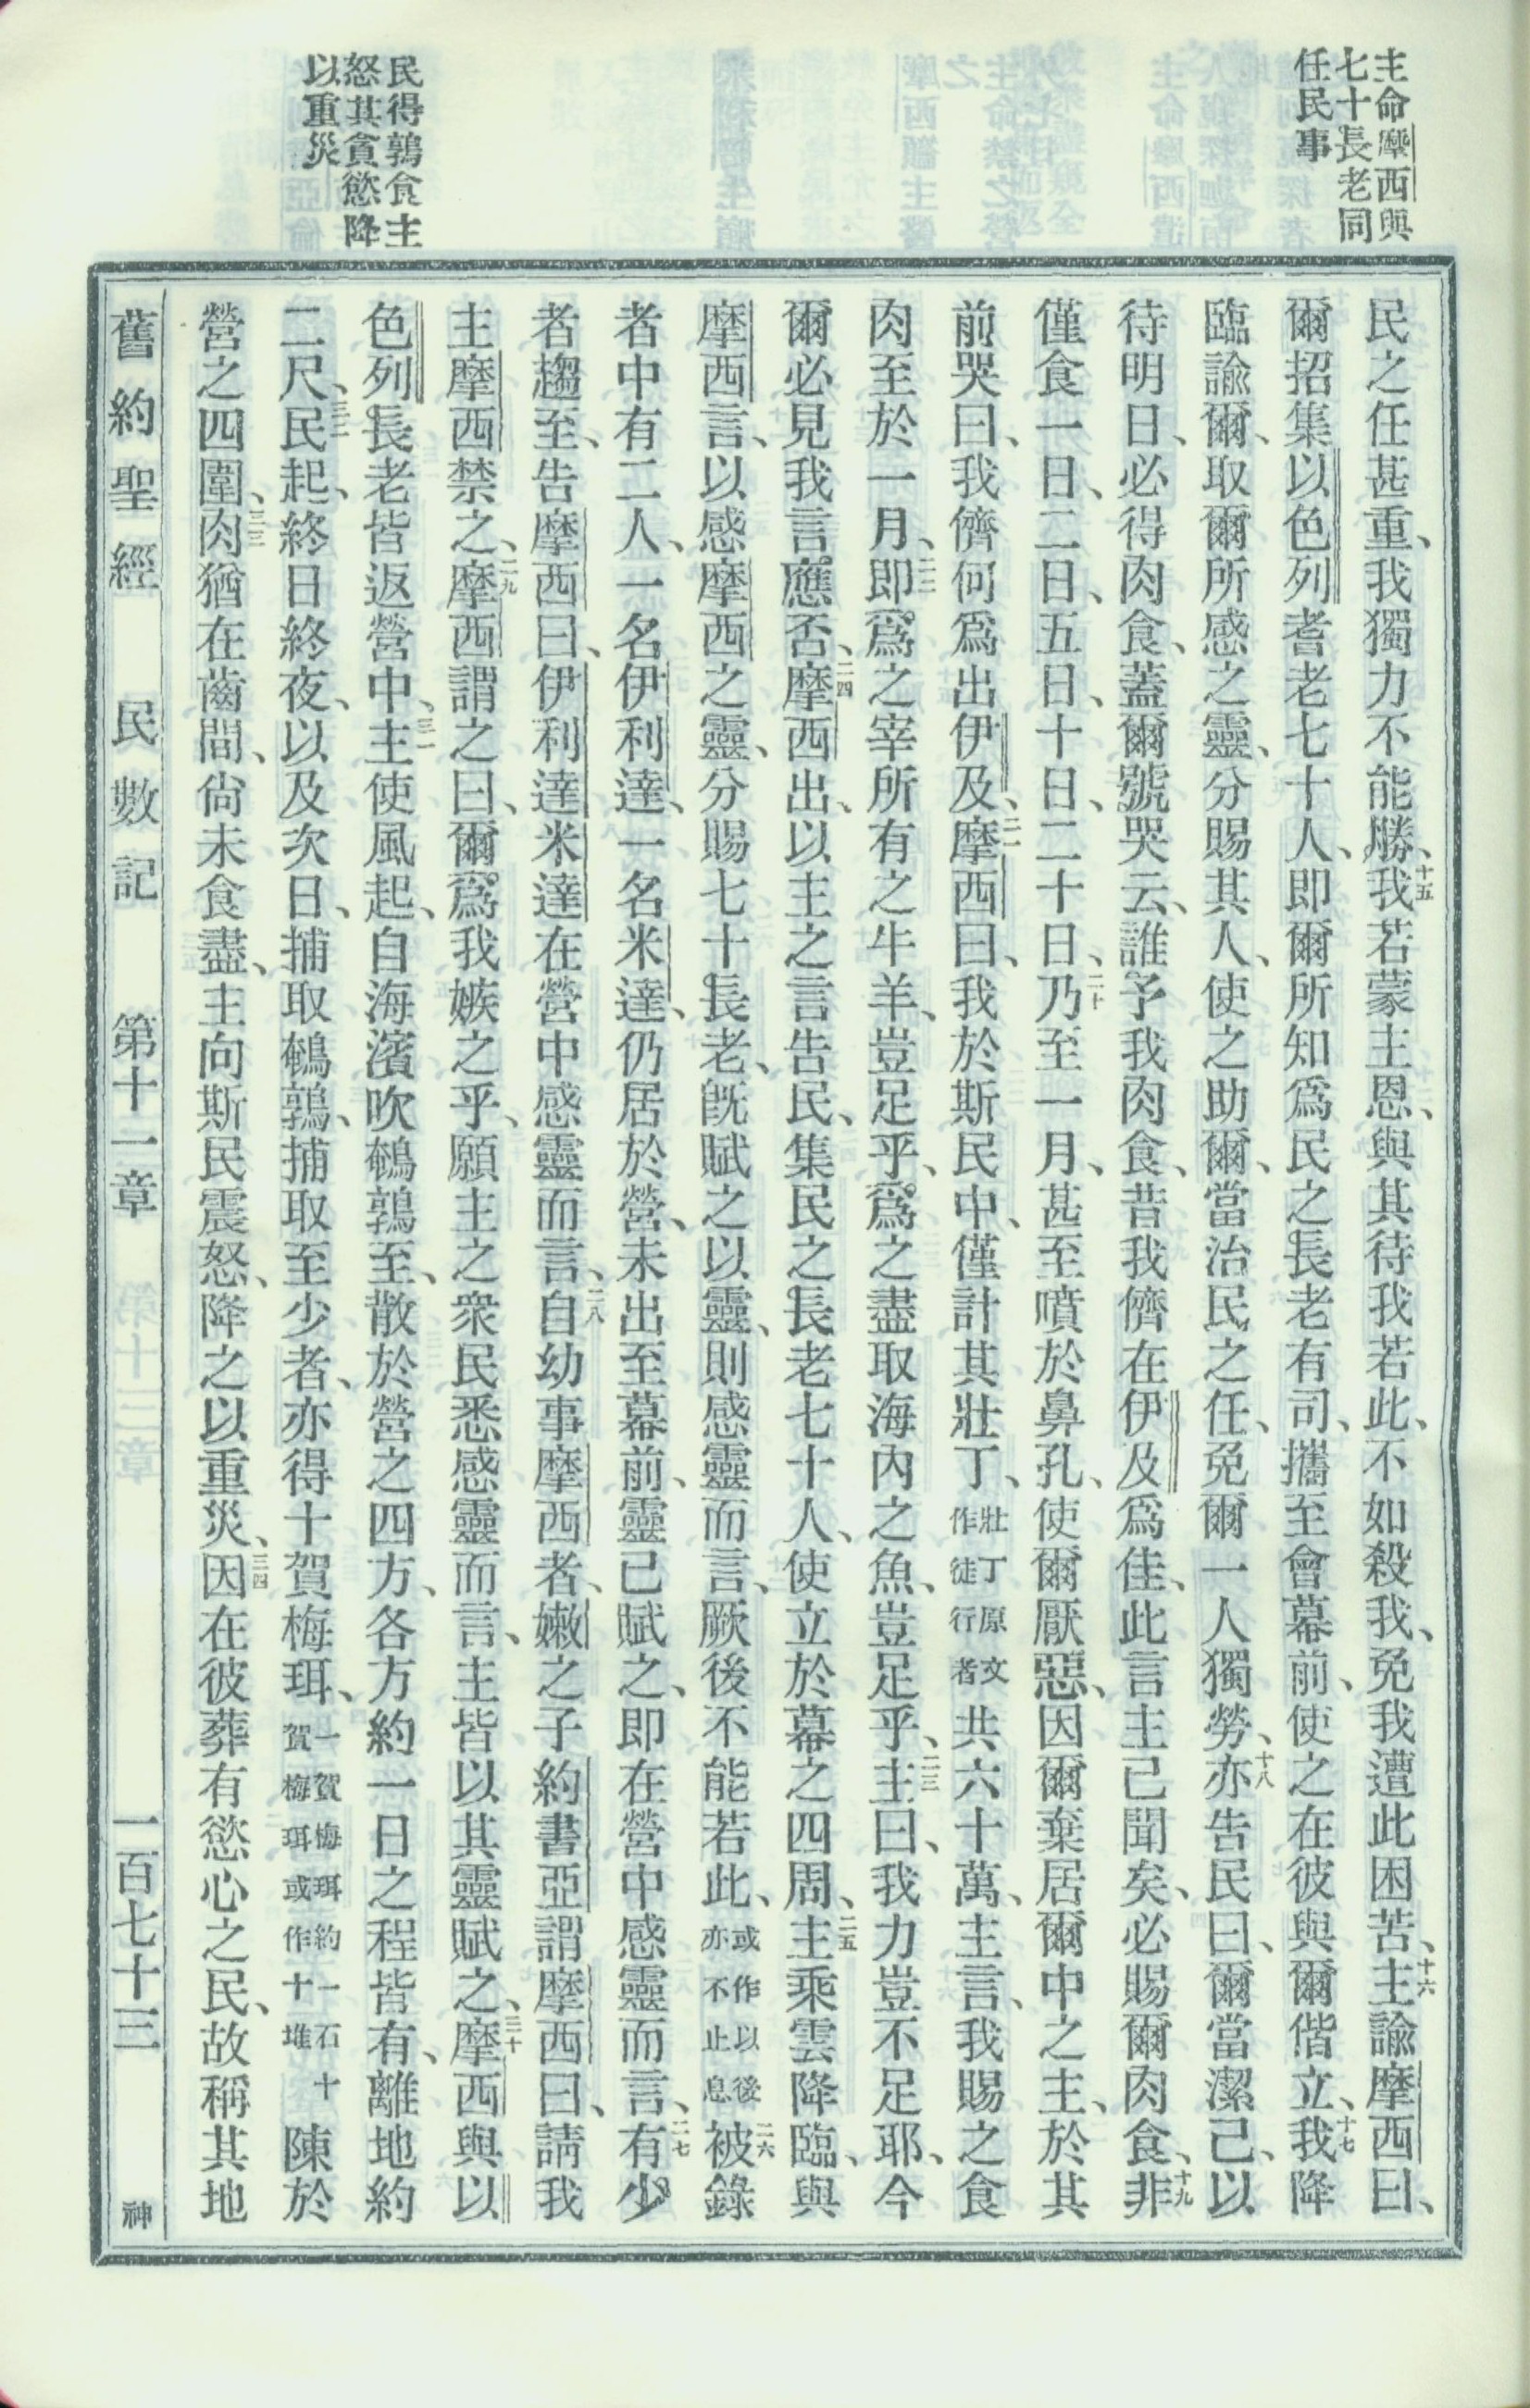 主命摩西與
七十長老同
任民事
民得鶉食主
怒其貪慾降
以重災
民之任甚重、我獨力不能勝、十五我若蒙主恩、與其待我若此、不如殺我、免我遭此困苦、十六主諭摩西曰、
爾招集以色列耆老七十人、即爾所知爲民之長老有司、攜至會幕前、使之在彼與爾偕立、十七我降
臨諭爾、取爾所感之靈、分賜其人、使之助爾、當治民之任、免爾一人獨勞、十八亦告民曰、爾當潔己、以
待明日、必得肉食、蓋爾號哭云、誰予我肉食、昔我儕在伊及爲佳、此言主已聞矣、必賜爾肉食、十九非
僅食一日、二日、五日、十日、二十日、二十乃至一月、甚至噴於鼻孔、使爾厭惡、因爾棄居爾中之主、於其
前哭曰、我儕何爲出伊及、二一摩西曰、我於斯民中、僅計其壯丁、壯丁原文作徒行者共六十萬、主言、我賜之食
肉至於一月、二二即爲之宰所有之牛羊、豈足乎、爲之盡取海內之魚、豈足乎、二三主曰、我力豈不足耶、今
爾必見我言應否、二四摩西出、以主之言告民、集民之長老七十人、使立於幕之四周、二五主乘雲降臨、與
摩西言、以感摩西之靈、分賜七十長老、既賦之以靈、則感靈而言、厥後不能若此、或作以後亦不止息二六被錄
者中有二人、一名伊利達、一名米達、仍居於營、未出至幕前、靈已賦之、即在營中感靈而言、二七有少
者趨至、告摩西曰、伊利達米達在營中感靈而言、二八自幼事摩西者、嫩之子約書亞謂摩西曰、請我
主摩西禁之、二九摩西謂之曰、爾爲我嫉之乎、願主之衆民悉感靈而言、主皆以其靈賦之、三十摩西與以
色列長老皆返營中、三一主使風起、自海濱吹鵪鶉至、散於營之四方、各方約一日之程皆有、離地約
二尺、三二民起、終日終夜、以及次日、捕取鵪鶉、捕取至少者、亦得十賀梅珥、一賀梅珥約一石十賀梅珥或作十堆陳於
營之四圍、三三肉猶在齒間、尙未食盡、主向斯民震怒、降之以重災、三四因在彼葬有慾心之民、故稱其地
舊約聖經　民數記　第十一章　一百七十三　神